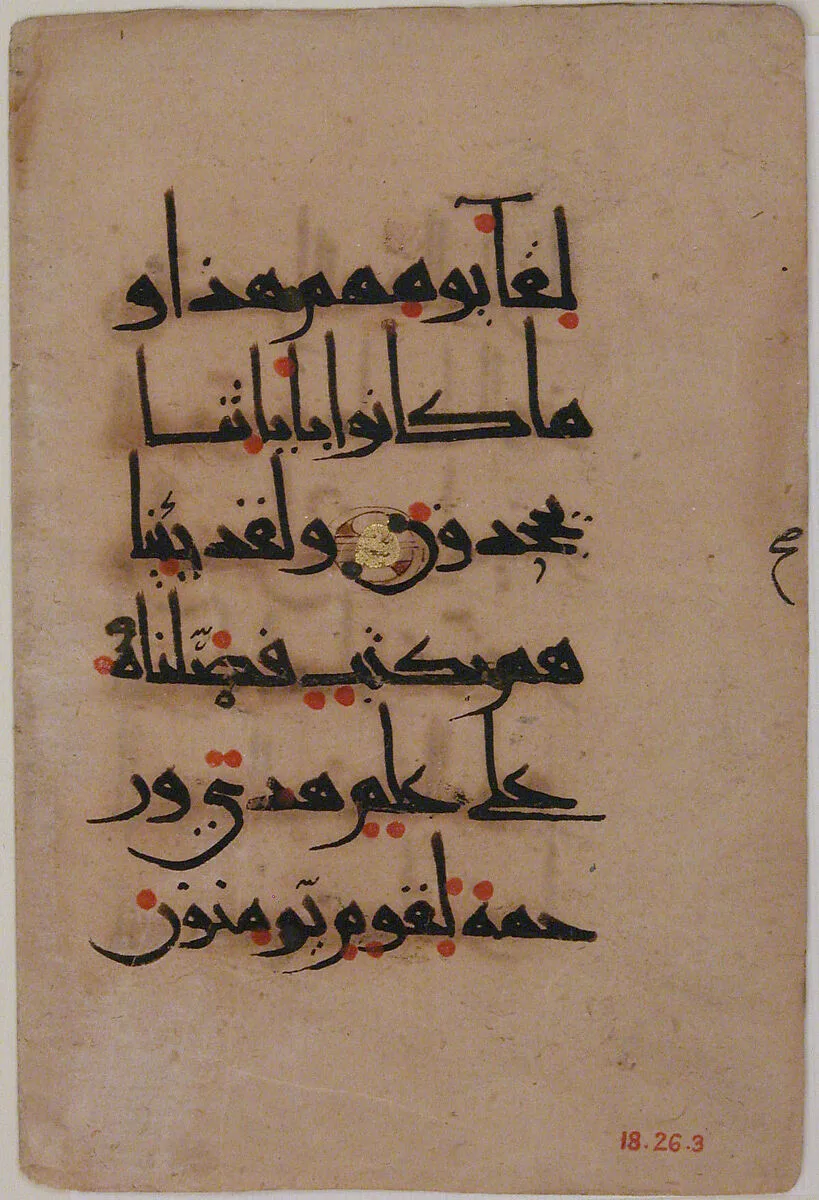 لقآ يومهم هذا و
ما كانوا باياتنا
يجحدون ولقد جئنا
هم بكتب فصّلناه
على علم هدى ور
حمة لقوم يومنون
18.26.3